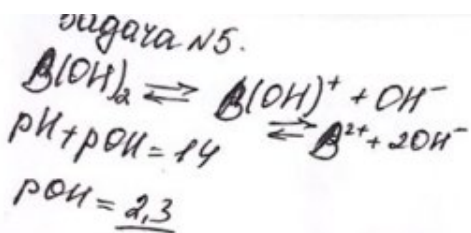 Задача N5.
B(OH)₂ ⇄ B(OH)⁺ + OH⁻
⇄ B²⁺ + 2OH⁻
pH + pOH = 14
pOH = 2,3